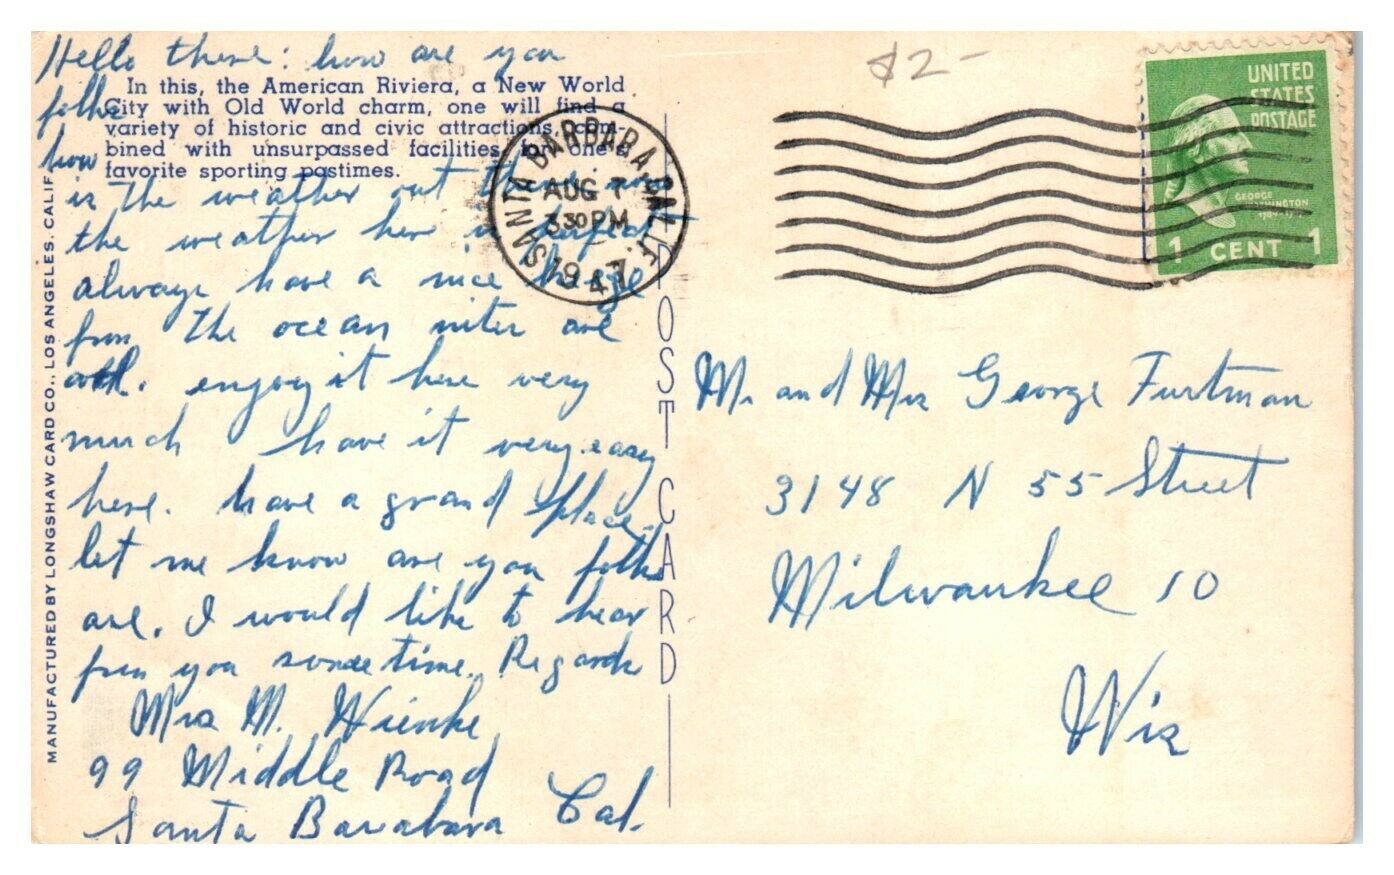 Hello there: how are you
folks
how
is the weather out there now
the weather here is perfect
always have a nice breeze
from the ocean niter are
enjoy it here very
much have it very easy
here. have a grand place.
let me know are you folks
are. I would like to hear
from you sometime. Regards
Mrs M. Wienke
99 Middle Road
Santa Barabara Cal.
In this, the American Riviera, a New World
City with Old World charm, one will find a
variety of historic and civic attractions, com-
bined with unsurpassed facilities for one's
favorite sporting pastimes.
MANUFACTURED BY LONGSHAW CARD CO., LOS ANGELES, CALIF.
POST CARD
SANTA BARBARA, CALIF.
AUG 7
3 30 PM
1947
$2-
UNITED
STATES
POSTAGE
GEORGE
WASHINGTON
1 CENT 1
Mr. and Mrs George Furtman
3148 N 55 Street
Milwaukee 10
Wis